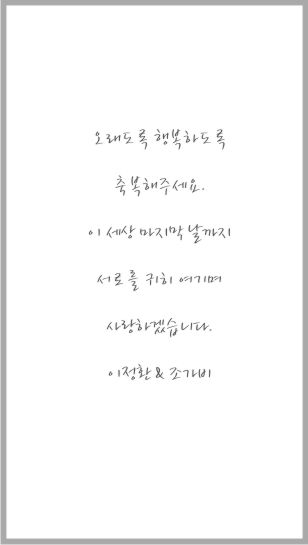 오래도록 행복하도록
축복해주세요.
이 세상 마지막 날까지
서로를 귀히 여기며
사랑하겠습니다.
이정환 & 조가비